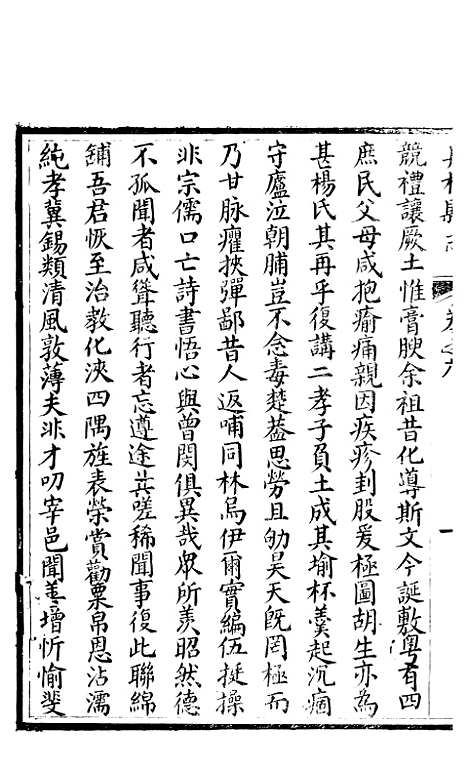 卷之六
競禮讓厥土惟膏腴余祖昔化導斯文今誕敷粵有四
庶民父母咸抱瘉痛親因疾疹刲股爰極圖胡生亦為
甚楊氏其再乎復講二孝子負土成其瑜杯羹起沉痼
守廬泣朝脯豈不念毒楚葢思勞且劬昊天旣罔極而
乃甘脉癯挾彈鄙昔人返哺同林烏伊爾實編伍挺操
非宗儒口亡詩書悟心與曾閔俱異哉眾所羨昭然德
不孤聞者咸聳聽行者忘遵途共嗟稀聞事復此聯綿
舖吾君恢至治教化浹四隅旌表榮賞勸粟帛恩沾濡
純孝冀錫類清風敦薄夫非才叨宰邑聞善增忻愉斐